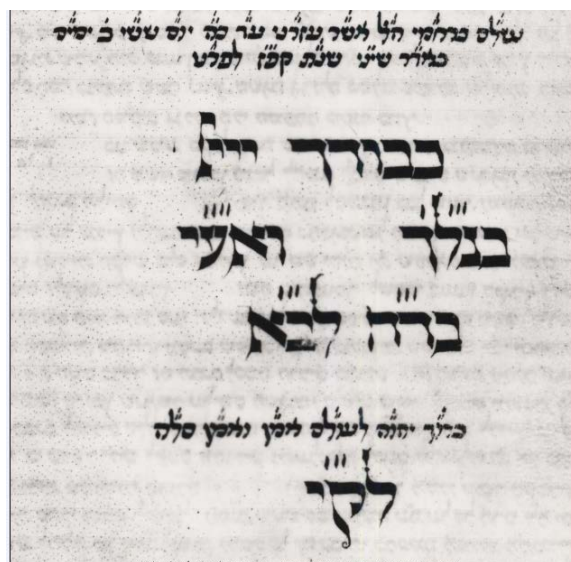 נשלם ברחמי האל אשר עזרני עד כה יום ששי ב ימים
באדר שיני שנת לפרט
בנלך ואעי
ברה לבא
ברוך יהוה לעולם אמן ואמן סלה
לקי